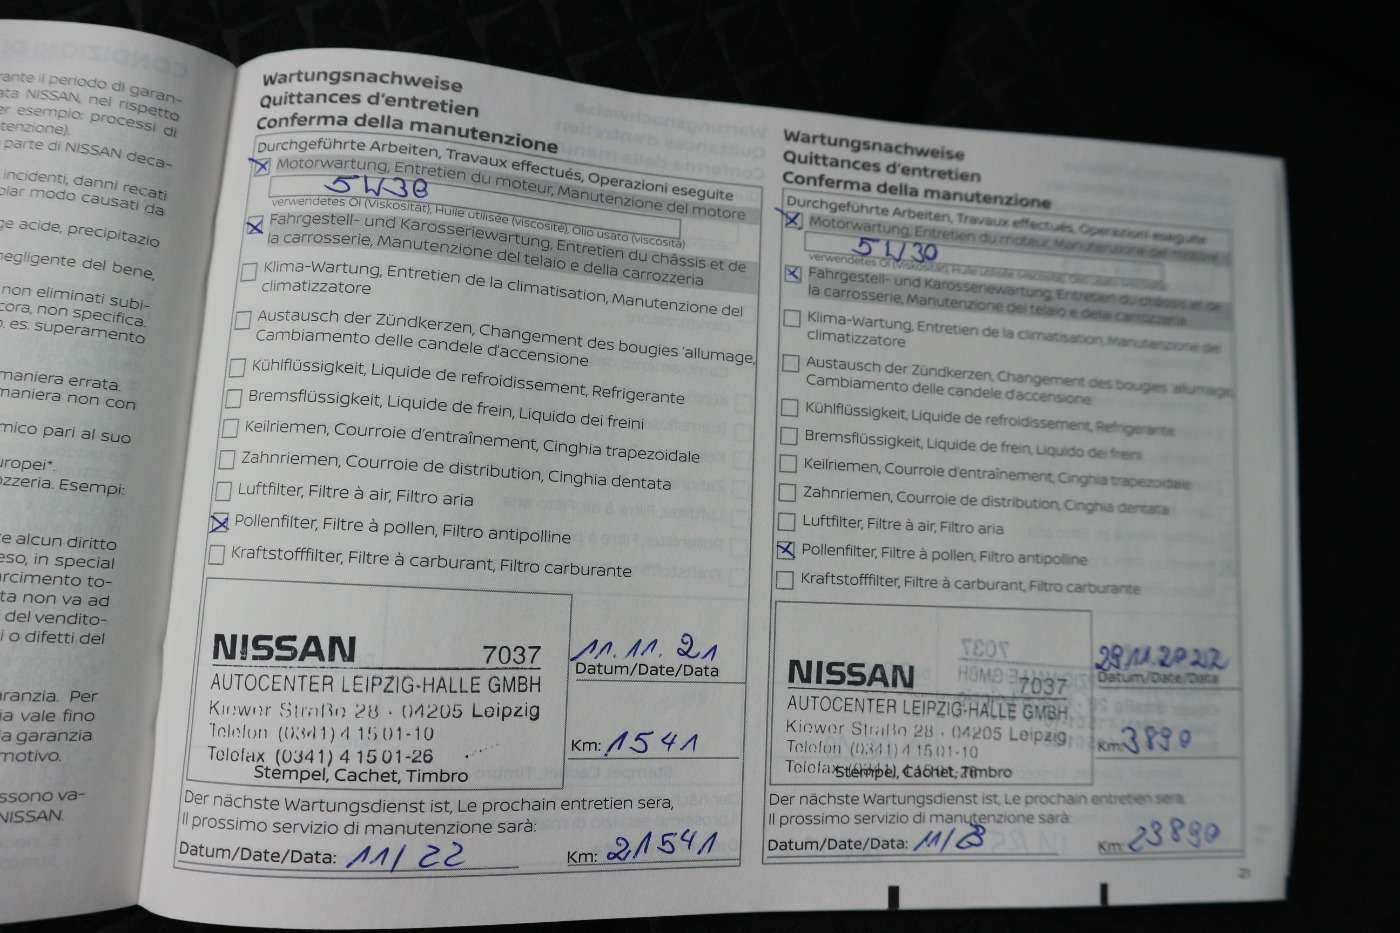 ante il periodo di garan-
ata NISSAN, nel rispetto
er esempio: processi di
tenzione).
parte di NISSAN deca-
incidenti, danni recati
biar modo causati da
ge acide, precipitazio
negligente del bene,
non eliminati subi-
cora, non specifica.
o. es. superamento
maniera errata.
maniera non con
mico pari al suo
uropei*.
ozzeria. Esempi:
e alcun diritto
eso, in special
arcimento to-
ta non va ad
del vendito-
i o difetti del
aranzia. Per
ia vale fino
a garanzia
motivo.
ssono va-
NISSAN.
Wartungsnachweise
Quittances d'entretien
Conferma della manutenzione
Durchgeführte Arbeiten, Travaux effectués, Operazioni eseguite
Motorwartung, Entretien du moteur, Manutenzione del motore
5W30
verwendetes Öl (Viskosität), Huile utilisée (viscosité), Olio usato (viscosità)
Fahrgestell- und Karosseriewartung, Entretien du châssis et de
la carrosserie, Manutenzione del telaio e della carrozzeria
Klima-Wartung, Entretien de la climatisation, Manutenzione del
climatizzatore
Austausch der Zündkerzen, Changement des bougies 'allumage,
Cambiamento delle candele d'accensione
Kühlflüssigkeit, Liquide de refroidissement, Refrigerante
Bremsflüssigkeit, Liquide de frein, Liquido dei freini
Keilriemen, Courroie d'entraînement, Cinghia trapezoidale
Zahnriemen, Courroie de distribution, Cinghia dentata
Luftfilter, Filtre à air, Filtro aria
Pollenfilter, Filtre à pollen, Filtro antipolline
Kraftstofffilter, Filtre à carburant, Filtro carburante
NISSAN 7037
AUTOCENTER LEIPZIG-HALLE GMBH
Kiewer Straße 28 · 04205 Leipzig
Telefon (0341) 4 15 01-10
Telefax (0341) 4 15 01-26
Stempel, Cachet, Timbro
11.11.21
Datum/Date/Data
Km: 1541
Der nächste Wartungsdienst ist, Le prochain entretien sera,
Il prossimo servizio di manutenzione sarà:
Datum/Date/Data: 11/22 Km: 21541
Wartungsnachweise
Quittances d'entretien
Conferma della manutenzione
Durchgeführte Arbeiten, Travaux effectués, Operazioni eseguite
Motorwartung, Entretien du moteur, Manutenzione del motore
5W30
verwendetes Öl (Viskosität), Huile utilisée (viscosité), Olio usato (viscosità)
Fahrgestell- und Karosseriewartung, Entretien du châssis et de
la carrosserie, Manutenzione del telaio e della carrozzeria
Klima-Wartung, Entretien de la climatisation, Manutenzione del
climatizzatore
Austausch der Zündkerzen, Changement des bougies 'allumage,
Cambiamento delle candele d'accensione
Kühlflüssigkeit, Liquide de refroidissement, Refrigerante
Bremsflüssigkeit, Liquide de frein, Liquido dei freini
Keilriemen, Courroie d'entraînement, Cinghia trapezoidale
Zahnriemen, Courroie de distribution, Cinghia dentata
Luftfilter, Filtre à air, Filtro aria
Pollenfilter, Filtre à pollen, Filtro antipolline
Kraftstofffilter, Filtre à carburant, Filtro carburante
NISSAN 7037
AUTOCENTER LEIPZIG-HALLE GMBH
Kiewer Straße 28 · 04205 Leipzig
Telefon (0341) 4 15 01-10
Telefax (0341) 4 15 01-26
Stempel, Cachet, Timbro
29.11.2022
Datum/Date/Data
Km: 3890
Der nächste Wartungsdienst ist, Le prochain entretien sera,
Il prossimo servizio di manutenzione sarà:
Datum/Date/Data: 11/23 Km: 23890
21